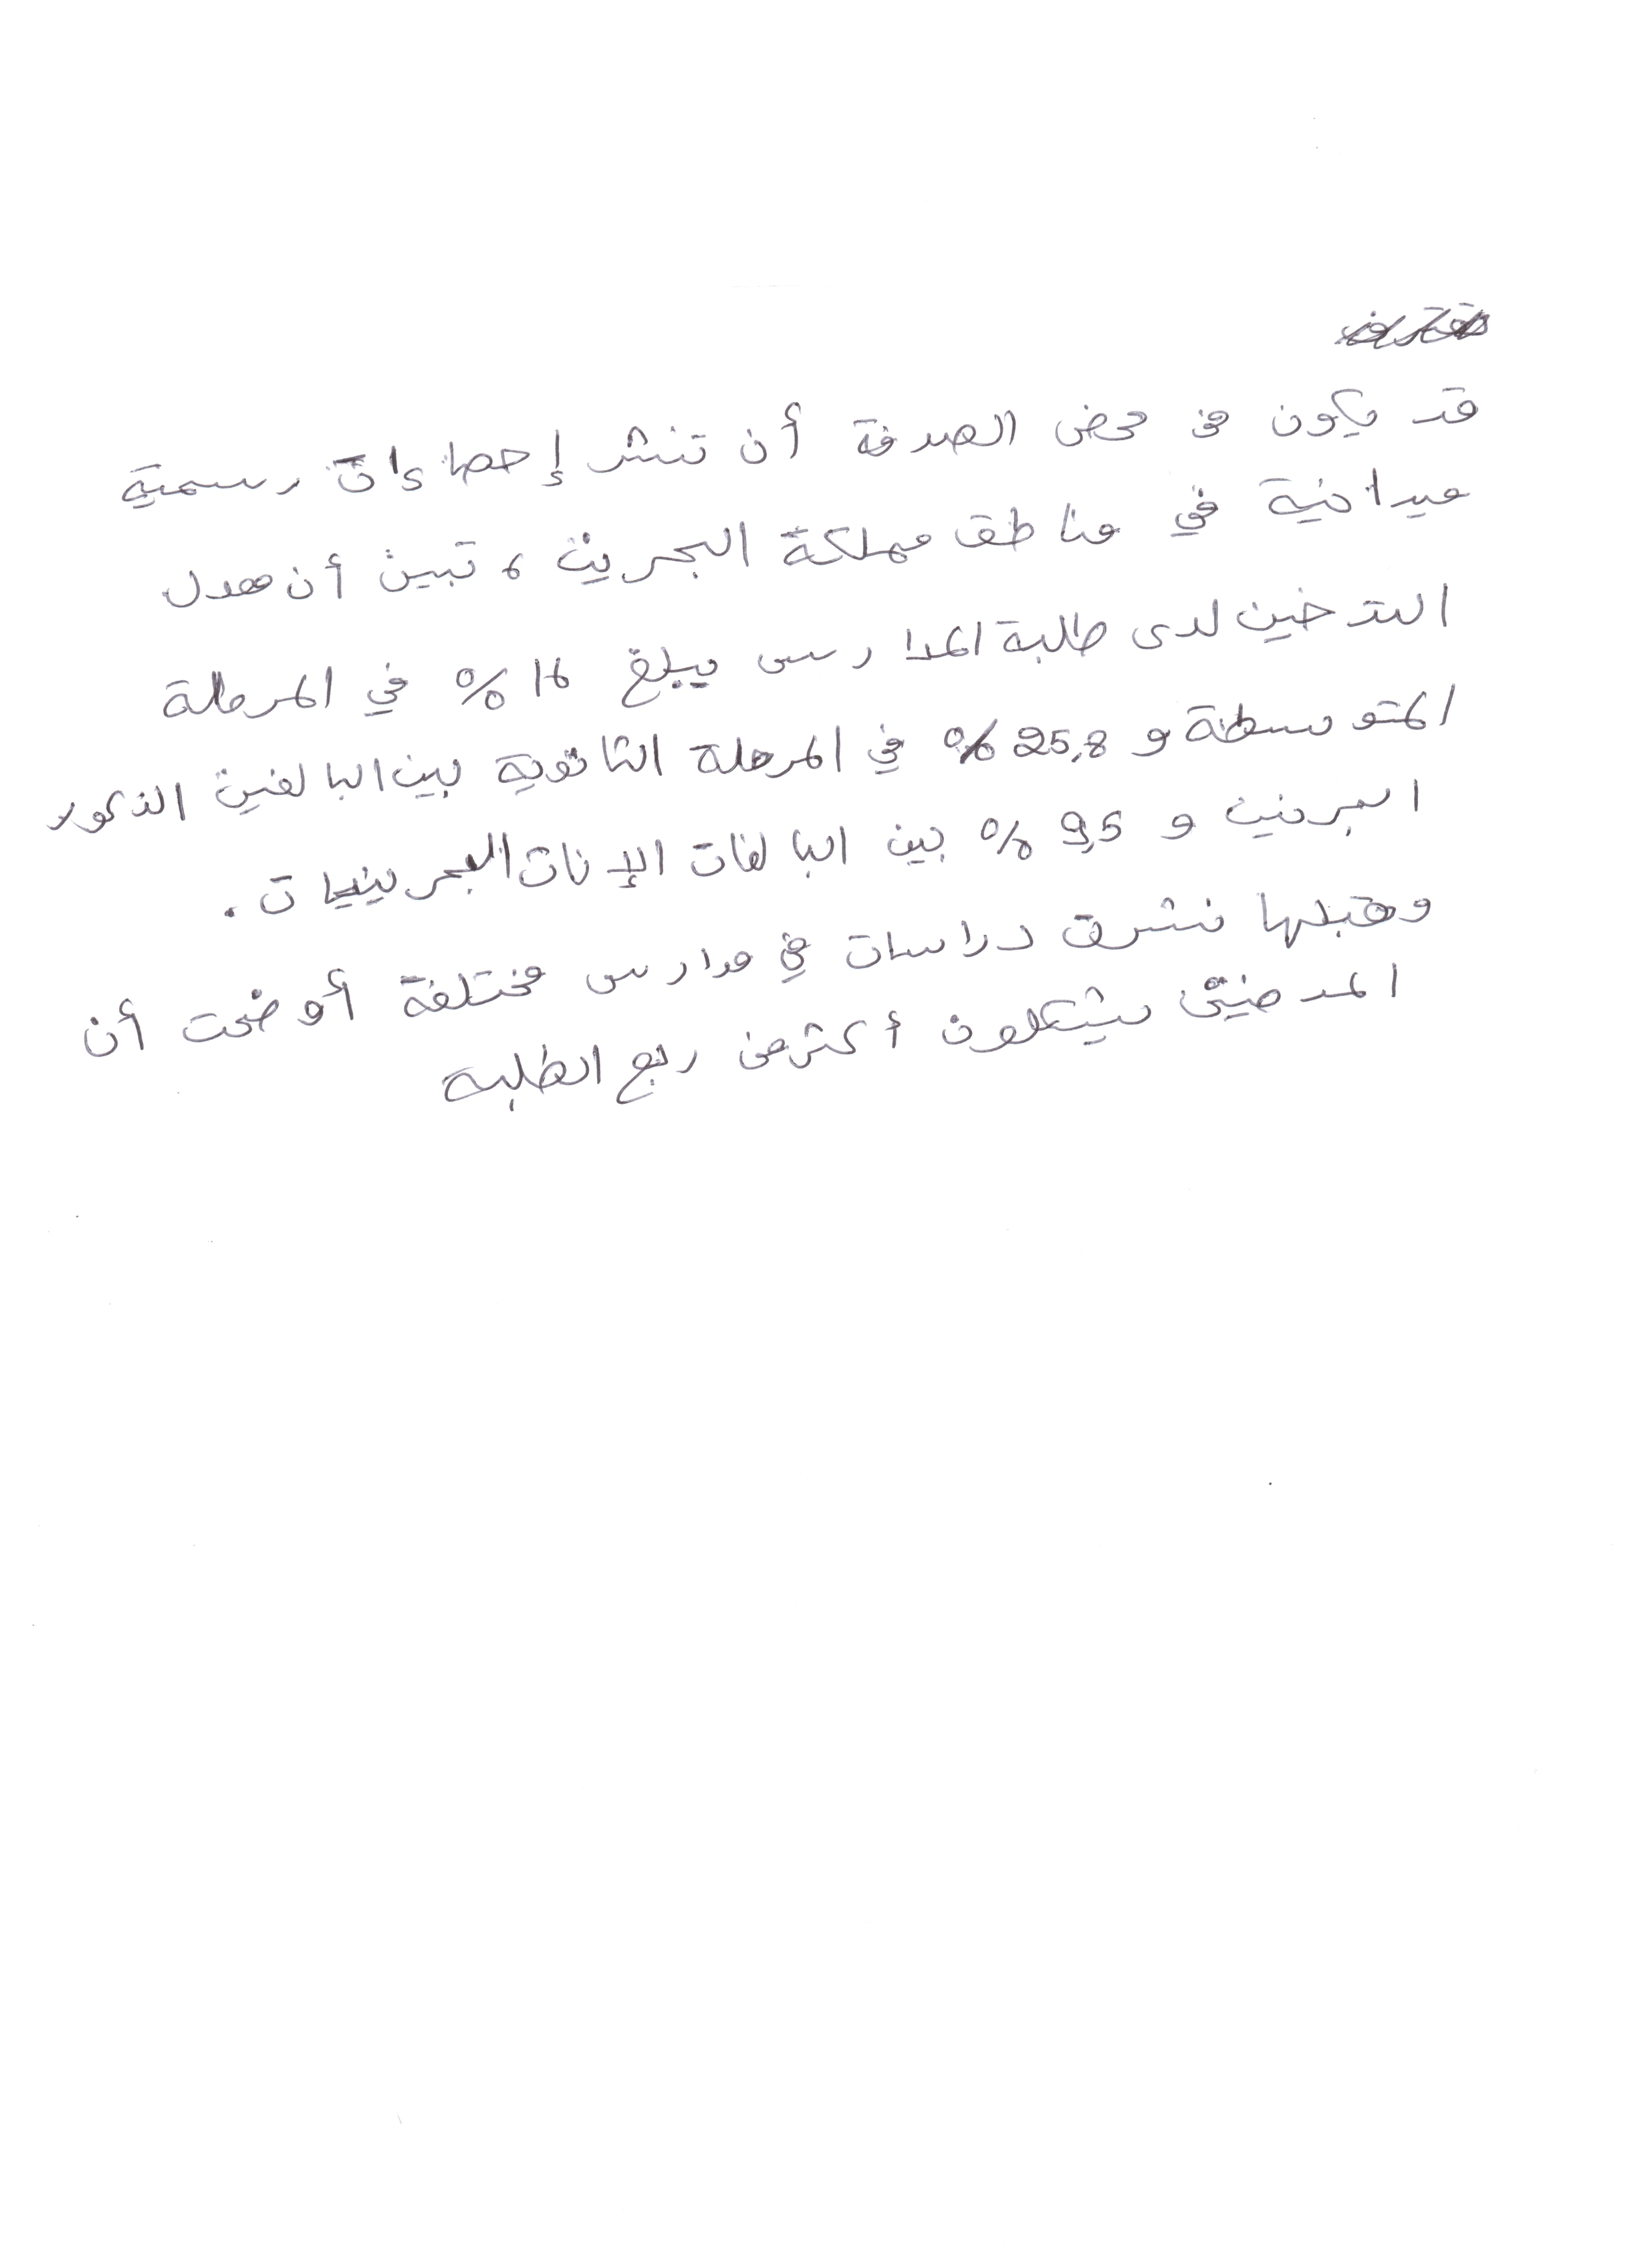 قد يكون من محض الصدفة أن تنشر إحصاءات رسمية
ميدانية في مناطق مملكة البحرين، تبين أن معدل
التدخين لدى طلبة المدارس يبلغ 16 % في المرحلة
المتوسطة و 25,8 % في المرحلة الثانوية بين البالغين الذكور
البرنين و 9,5 % بين البالغات الإناث البحرينيات.
وقبلها نشرت دراسات في مدارس مختلفة أوضحت أن
المدخنين يشكلون أكثر من ربع الطلبة